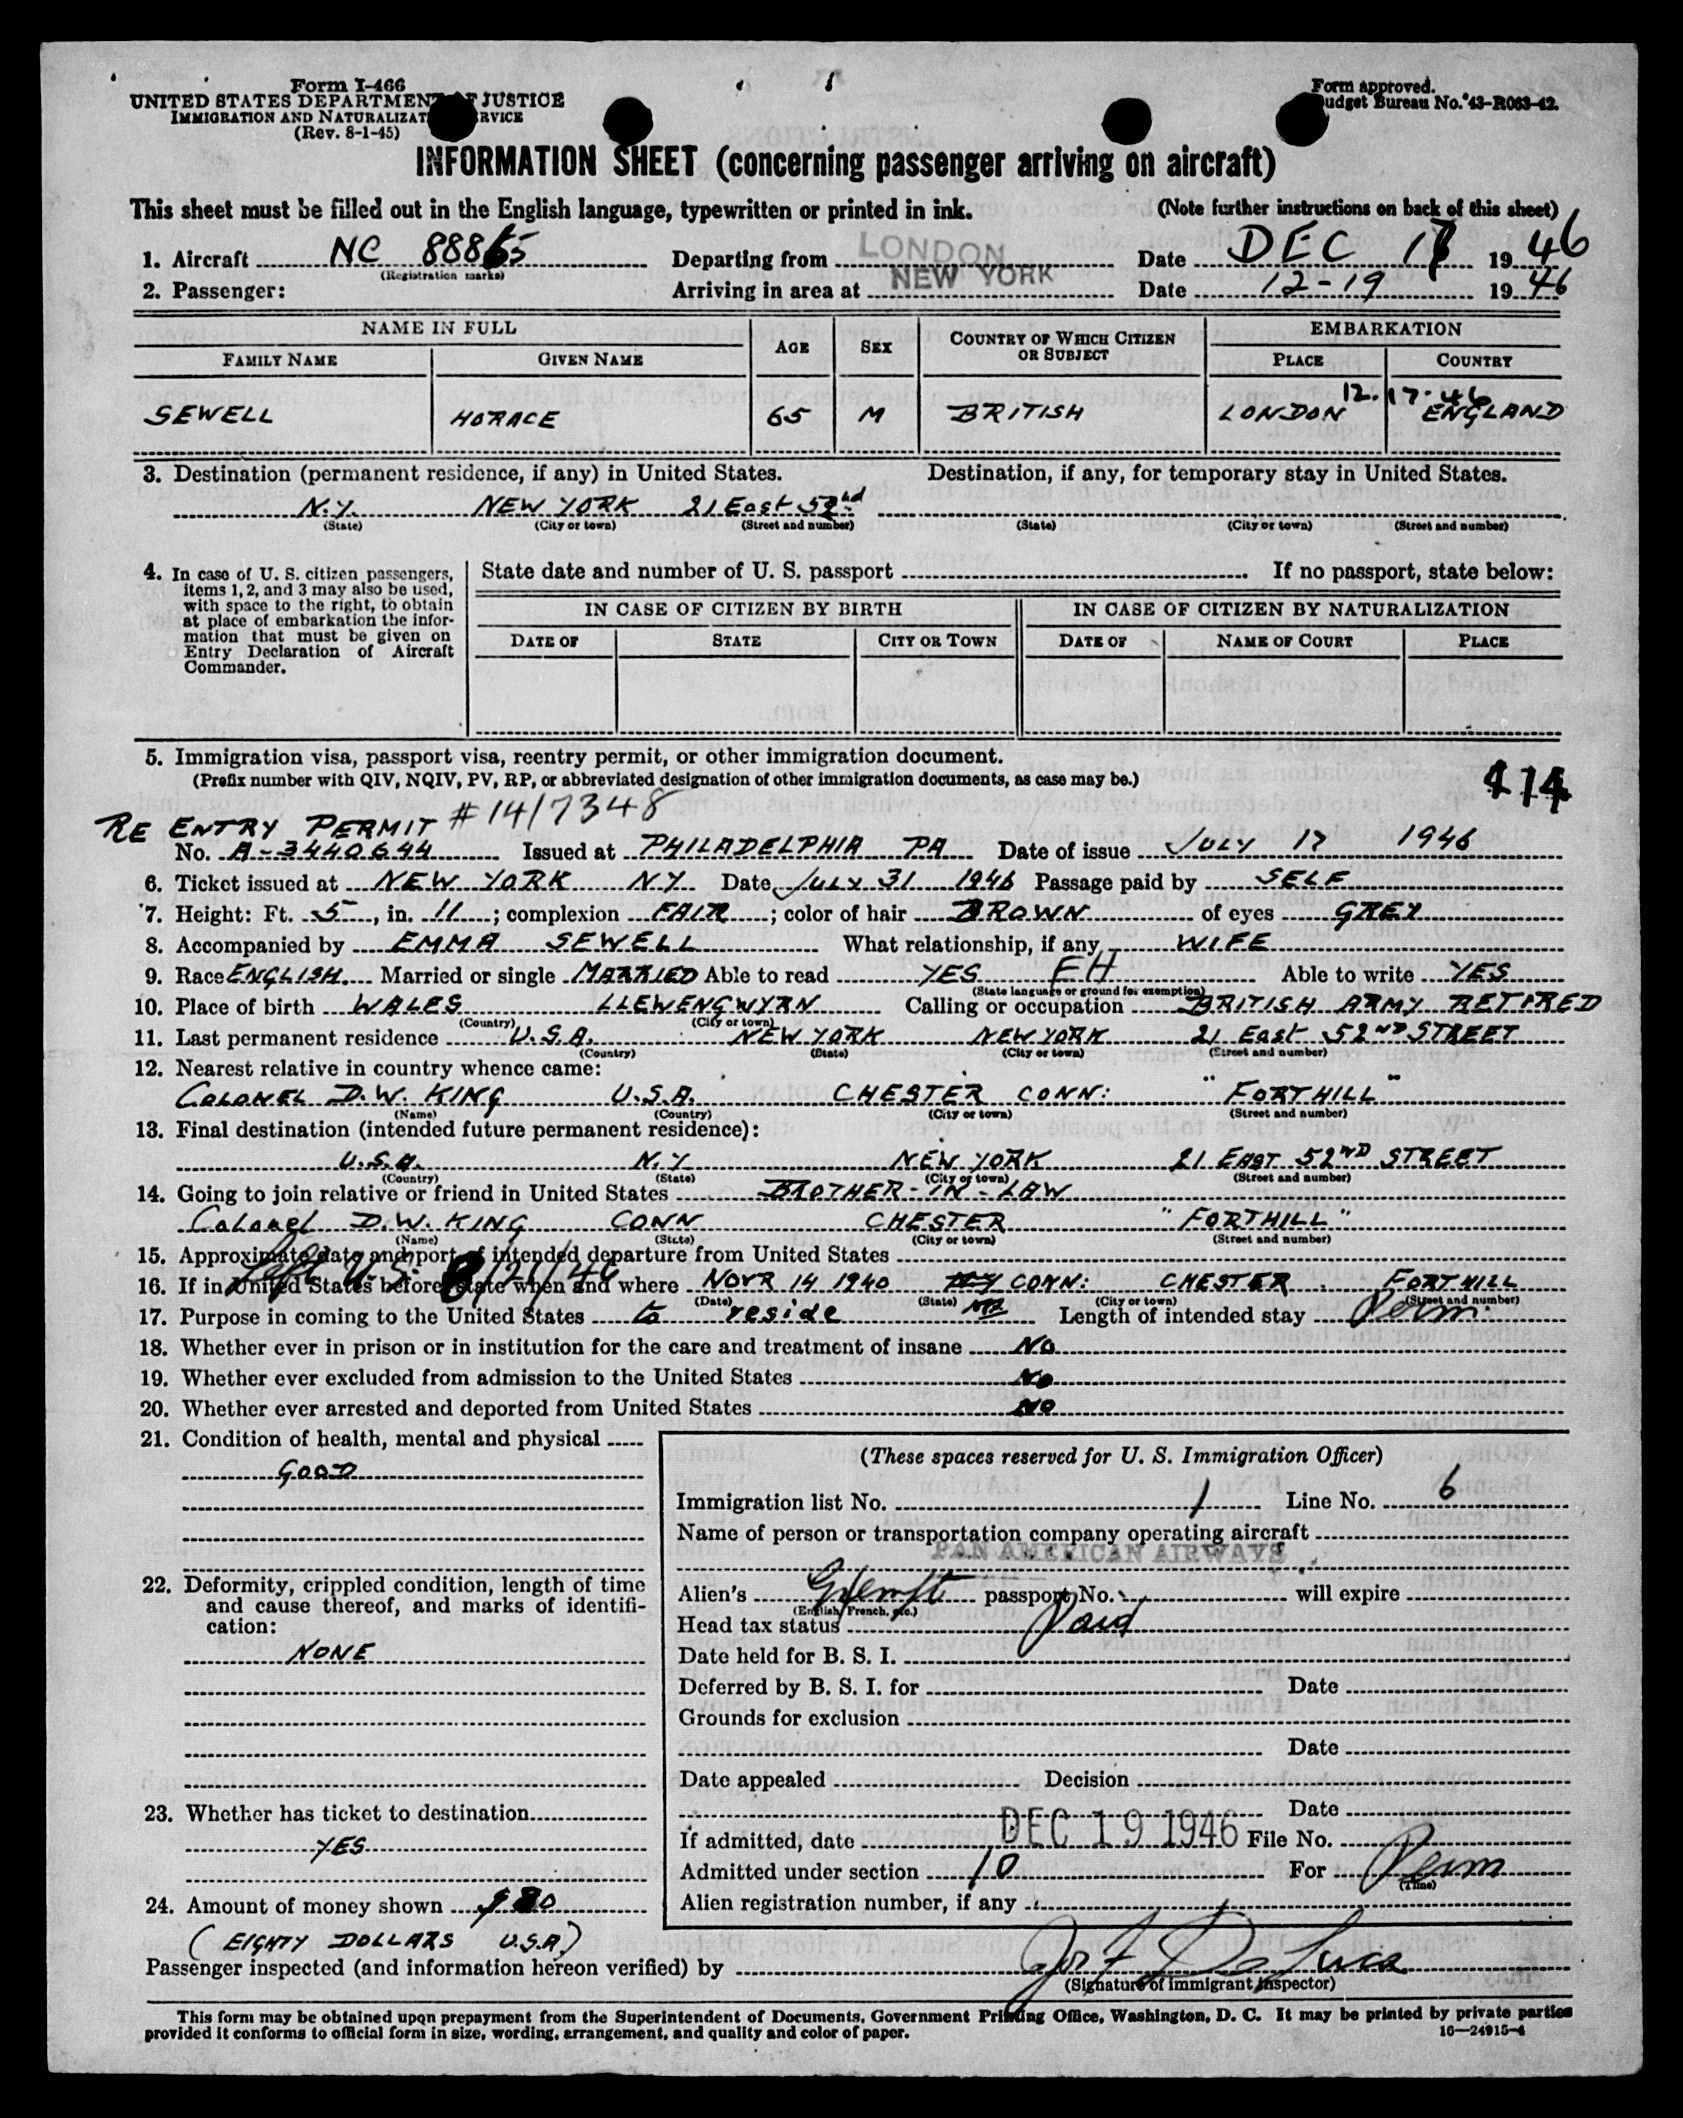 Form I-466
UNITED STATES DEPARTMENT OF JUSTICE
IMMIGRATION AND NATURALIZATION SERVICE
(Rev. 8-1-45)
Form approved.
Budget Bureau No. 43-R063-42.
INFORMATION SHEET (concerning passenger arriving on aircraft)
This sheet must be filled out in the English language, typewritten or printed in ink. (Note further instructions on back of this sheet)
1. Aircraft NC 88865 Departing from LONDON Date DEC 1946
(Registration marks)
2. Passenger: Arriving in area at NEW YORK Date 12-19 1946
NAME IN FULL AGE SEX COUNTRY OF WHICH CITIZEN OR SUBJECT EMBARKATION
FAMILY NAME GIVEN NAME PLACE COUNTRY
12.17-46
SEWELL HORACE 65 M BRITISH LONDON ENGLAND
3. Destination (permanent residence, if any) in United States. Destination, if any, for temporary stay in United States.
N.Y. NEW YORK 21 East 52nd
(State) (City or town) (Street and number) (State) (City or town) (Street and number)
4. In case of U. S. citizen passengers, items 1, 2, and 3 may also be used, with space to the right, to obtain at place of embarkation the information that must be given on Entry Declaration of Aircraft Commander.
State date and number of U. S. passport If no passport, state below:
IN CASE OF CITIZEN BY BIRTH IN CASE OF CITIZEN BY NATURALIZATION
DATE OF STATE CITY OR TOWN DATE OF NAME OF COURT PLACE
5. Immigration visa, passport visa, reentry permit, or other immigration document.
(Prefix number with QIV, NQIV, PV, RP, or abbreviated designation of other immigration documents, as case may be.)
414
RE ENTRY PERMIT #1417348
No. A-3440644 Issued at PHILADELPHIA PA Date of issue JULY 17 1946
6. Ticket issued at NEW YORK N.Y Date July 31 1946 Passage paid by SELF
7. Height: Ft. 5, in. 11; complexion FAIR; color of hair BROWN of eyes GREY
8. Accompanied by EMMA SEWELL What relationship, if any WIFE
9. Race ENGLISH Married or single MARRIED Able to read YES EH Able to write YES
(State language or ground for exemption)
10. Place of birth WALES LLEWENGWYRN Calling or occupation BRITISH ARMY RETIRED
(Country) (City or town)
11. Last permanent residence U.S.A. NEW YORK NEW YORK 21 East 52ND STREET
(Country) (State) (City or town) (Street and number)
12. Nearest relative in country whence came:
COLONEL D.W. KING U.S.A. CHESTER CONN: "FORTHILL"
(Name) (Country) (City or town) (Street and number)
13. Final destination (intended future permanent residence):
U.S.A. N.Y NEW YORK 21 EAST 52ND STREET
(Country) (State) (City or town) (Street and number)
14. Going to join relative or friend in United States BROTHER-IN-LAW
Colonel D.W. KING CONN CHESTER "FORTHILL"
(Name) (State) (City or town) (Street and number)
15. Approximate date and port of intended departure from United States
Left U.S. 8/21/46
16. If in United States before state when and where NOVR 14 1940 CONN: CHESTER FORTHILL
(Date) (State) (City or town) (Street and number)
17. Purpose in coming to the United States to reside Length of intended stay Perm.
18. Whether ever in prison or in institution for the care and treatment of insane NO
19. Whether ever excluded from admission to the United States NO
20. Whether ever arrested and deported from United States NO
21. Condition of health, mental and physical
GOOD
22. Deformity, crippled condition, length of time and cause thereof, and marks of identification:
NONE
23. Whether has ticket to destination
YES
24. Amount of money shown $80
(EIGHTY DOLLARS U.S.A.)
(These spaces reserved for U. S. Immigration Officer)
Immigration list No. 1 Line No. 6
Name of person or transportation company operating aircraft
PAN AMERICAN AIRWAYS
Alien's passport No. will expire
(English, French, etc.)
Head tax status Paid
Date held for B. S. I.
Deferred by B. S. I. for Date
Grounds for exclusion
Date
Date appealed Decision
Date
If admitted, date DEC 19 1946 File No.
Admitted under section 10 For Perm
(Time)
Alien registration number, if any
Passenger inspected (and information hereon verified) by Jos F De Luca
(Signature of immigrant inspector)
This form may be obtained upon prepayment from the Superintendent of Documents, Government Printing Office, Washington, D. C. It may be printed by private parties
provided it conforms to official form in size, wording, arrangement, and quality and color of paper. 16—24915-4